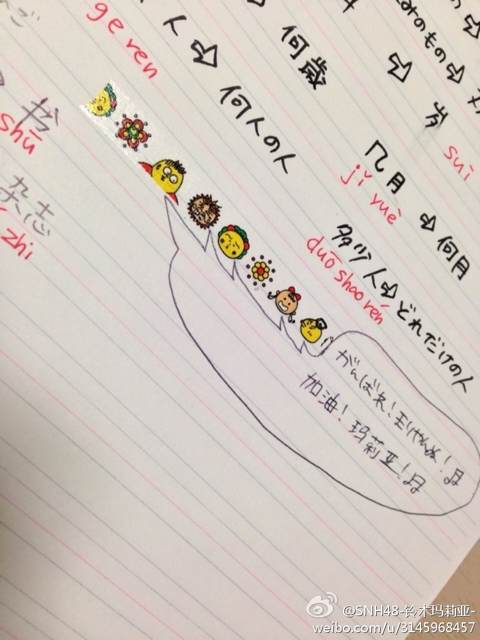 ge ren
人 ⇨ 何人の人
⇨ 何歳
みのもの ⇨
⇨ 岁
suì
书
shū
杂志
zhì
几月 ⇨ 何月
jǐ yuè
多少人⇨どれだけの人
duō shao rén
がんばれ!
加油!玛莉亚!
@SNH48-铃木玛莉亚-
weibo.com/u/3145968457